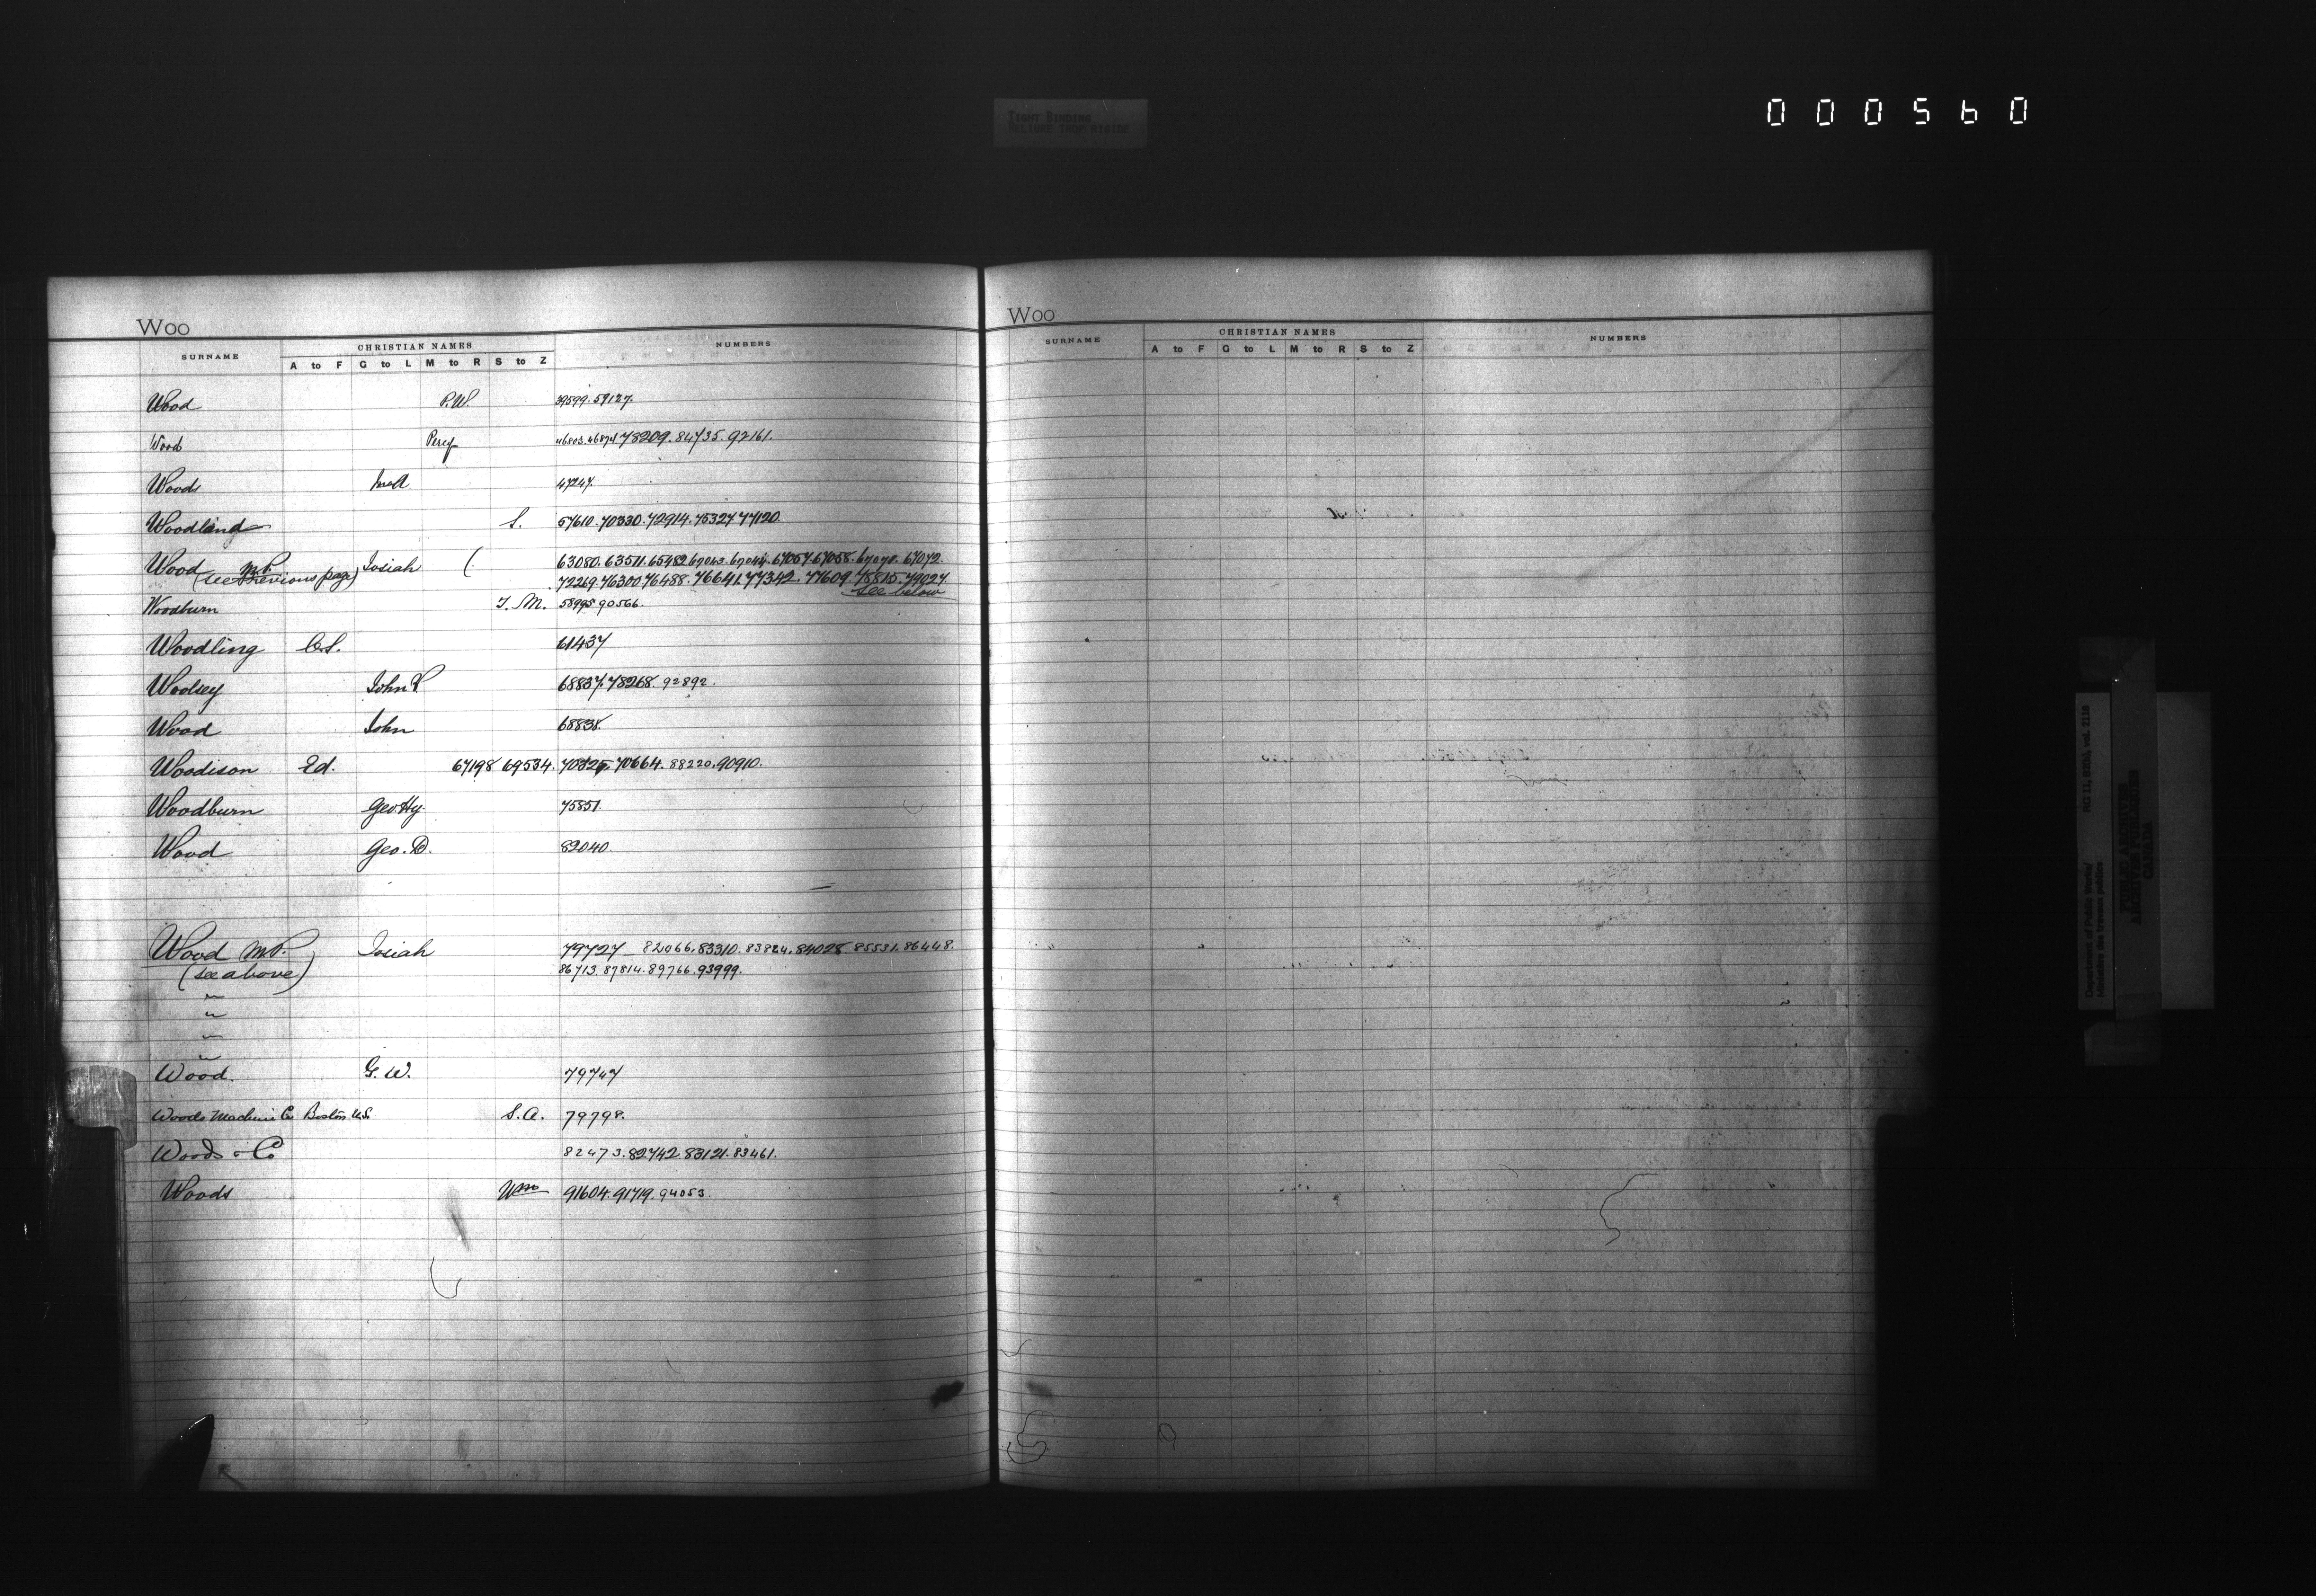 000560
TIGHT BINDING
RELIURE TROP RIGIDE
Woo
SURNAME CHRISTIAN NAMES NUMBERS
A to F G to L M to R S to Z
Wood P.W. 39599. 59127.
Wood Percy 46803. 46874 78209. 84735. 92161.
Woods 47247.
Woodland S. 57610. 70330. 72914. 75327 77120.
Wood M.P. Josiah ( 63080. 63511. 65482 67043. 67044. 67057 67058. 67070. 67072.
(see previous page) 72269. 76300 76488. 76641. 77342. 77609. 78815. 79027
see below
Woodburn J. M. 58995 90566.
Woodling C.S. 61437
Woolsey John 68837. 78268. 92892.
Wood John 68838.
Woodison Ed. 67198 69534. 70325. 70664. 88220. 90910.
Woodburn Geo. Hy. 75851.
Wood Geo. D. 82040.
Wood M.P. Josiah 79727 82066. 83310. 83824. 84028. 85531. 86448.
(see above) 86713. 87814. 89766. 93999.
"
"
"
"
Wood. G. W. 79747
Woods Machine Co Boston U.S. S.A. 79798.
Woods & Co 82473. 82742. 83121. 83461.
Woods Wm 91604. 91719. 94053.
Woo
SURNAME CHRISTIAN NAMES NUMBERS
A to F G to L M to R S to Z
Department of Public Works/
Ministère des travaux publics
RG 11, B2(b), vol. 2119
PUBLIC ARCHIVES
ARCHIVES PUBLIQUES
CANADA